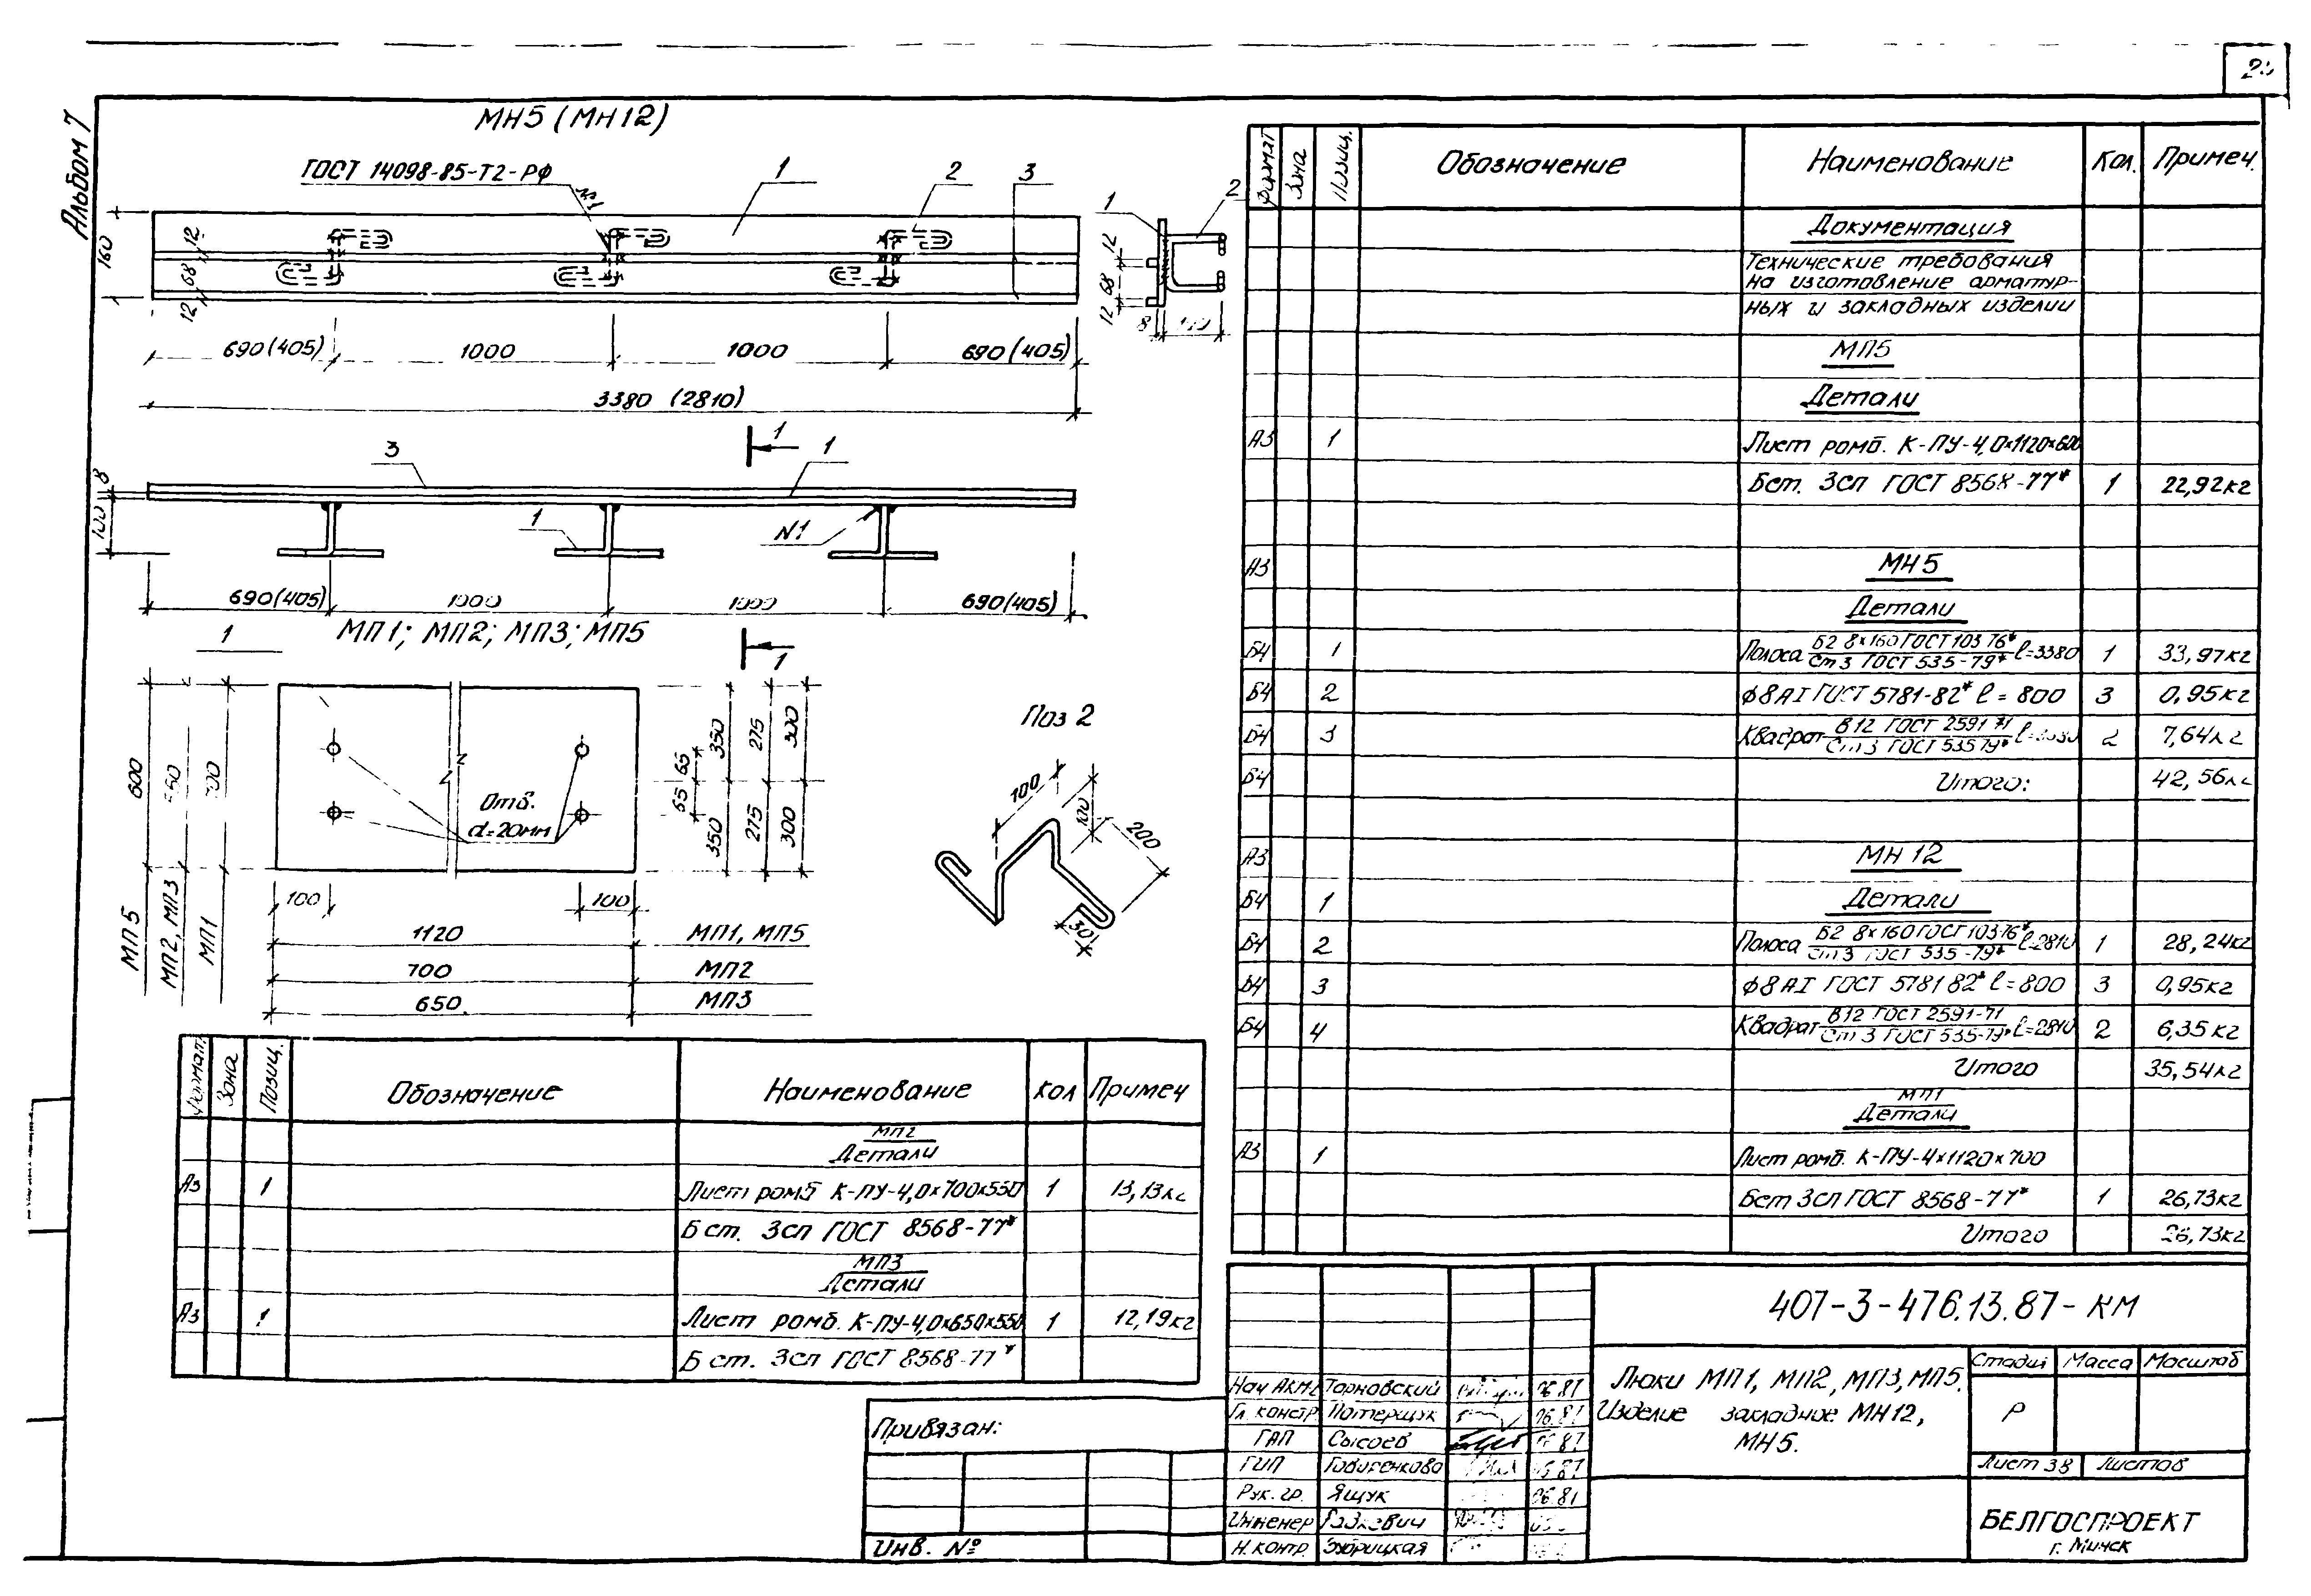 Альбом 7
МН5 (МН12)
ГОСТ 14098-85-Т2-РФ
№1
1
2
3
160
12
68
12
690(405)
1000
1000
690(405)
3380 (2810)
1
2
12
68
12
8
3
1
1
8
100
1
N1
690(405)
1000
1000
690(405)
1
1
МП1; МП2; МП3; МП5
600
МП5
МП2, МП3
МП1
Отв.
d=20мм
65
65
350
350
275
275
300
300
100
100
1120
МП1, МП5
700
МП2
650
МП3
Поз 2
100
100
200
30
Формат Зона Позиц. Обозначение Наименование Кол. Примеч.
Документация
Технические требования
на изготовление арматур-
ных и закладных изделии
МП5
Детали
А3 1 Лист ромб. К-ПУ-4,0х1120х600
Бст. 3сп ГОСТ 8568-77* 1 22,92кг
А3 МН5
Детали
Б4 1 Полоса Б2 8х160 ГОСТ 103 76* / Ст3 ГОСТ 535-79* ℓ=3380 1 33,97кг
Б4 2 ф8АI ГОСТ 5781-82* ℓ = 800 3 0,95кг
Б4 3 Квадрат В12 ГОСТ 2591 71 / Ст 3 ГОСТ 535 79* 2 7,64кг
Б4 Итого: 42,56кг
А3 МН 12
Б4 1 Детали
Б4 2 Полоса Б2 8х160 ГОСТ 103 76* / Ст 3 ГОСТ 535-79* ℓ=2810 1 28,24кг
Б4 3 ф8АI ГОСТ 5781 82* ℓ=800 3 0,95кг
Б4 4 Квадрат В12 ГОСТ 2591-71 / Ст 3 ГОСТ 535-79* ℓ=2810 2 6,35кг
Итого 35,54кг
МП1
Детали
А3 1 Лист ромб. К-ПУ-4х1120х700
Бст 3сп ГОСТ 8568-77* 1 26,73кг
Итого 26,73кг
Формат Зона Позиц. Обозначение Наименование Кол Примеч
МП2
Детали
А3 1 Лист ромб К-ПУ-4,0х700х550 1 13,13кг
Б ст. 3сп ГОСТ 8568-77*
МП3
Детали
А3 1 Лист ромб. К-ПУ-4,0х650х550 1 12,19кг
Б ст. 3сп ГОСТ 8568-77*
Привязан:
Инв. №
Нач АКМ-2 Тарновский 06.87
Гл. констр. Потерщук 06.87
ГАП Сысоев 87
ГИП 06.87
Рук. гр. Ящук 06.87
Инженер
Н. контр.
407-3-476.13.87-КМ
Люки МП1, МП2, МП3, МП5.
Изделие закладное МН12,
МН5.
Стадия Масса Масштаб
Р
Лист 38 Листов
БЕЛГОСПРОЕКТ
г. Минск